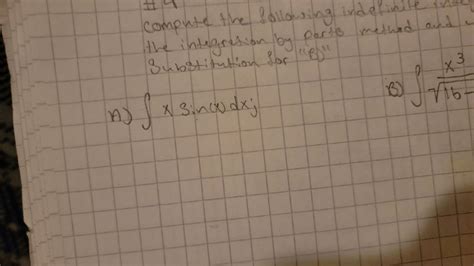 #4
compute the following indefinite
the integration by parts method and
Substitution for "B)"
A) ∫ x Sin(x) dx;
B) ∫ x³/√16-